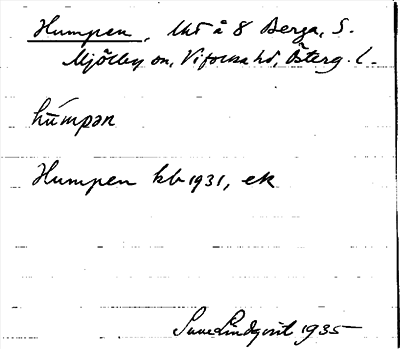 Humpen, Uts å 8 Berga, S.
Mjölby sn, Vifolka hd, Österg. l.
hùmpən
Humpen kb 1931, ek
Sune Lindqvist 1935